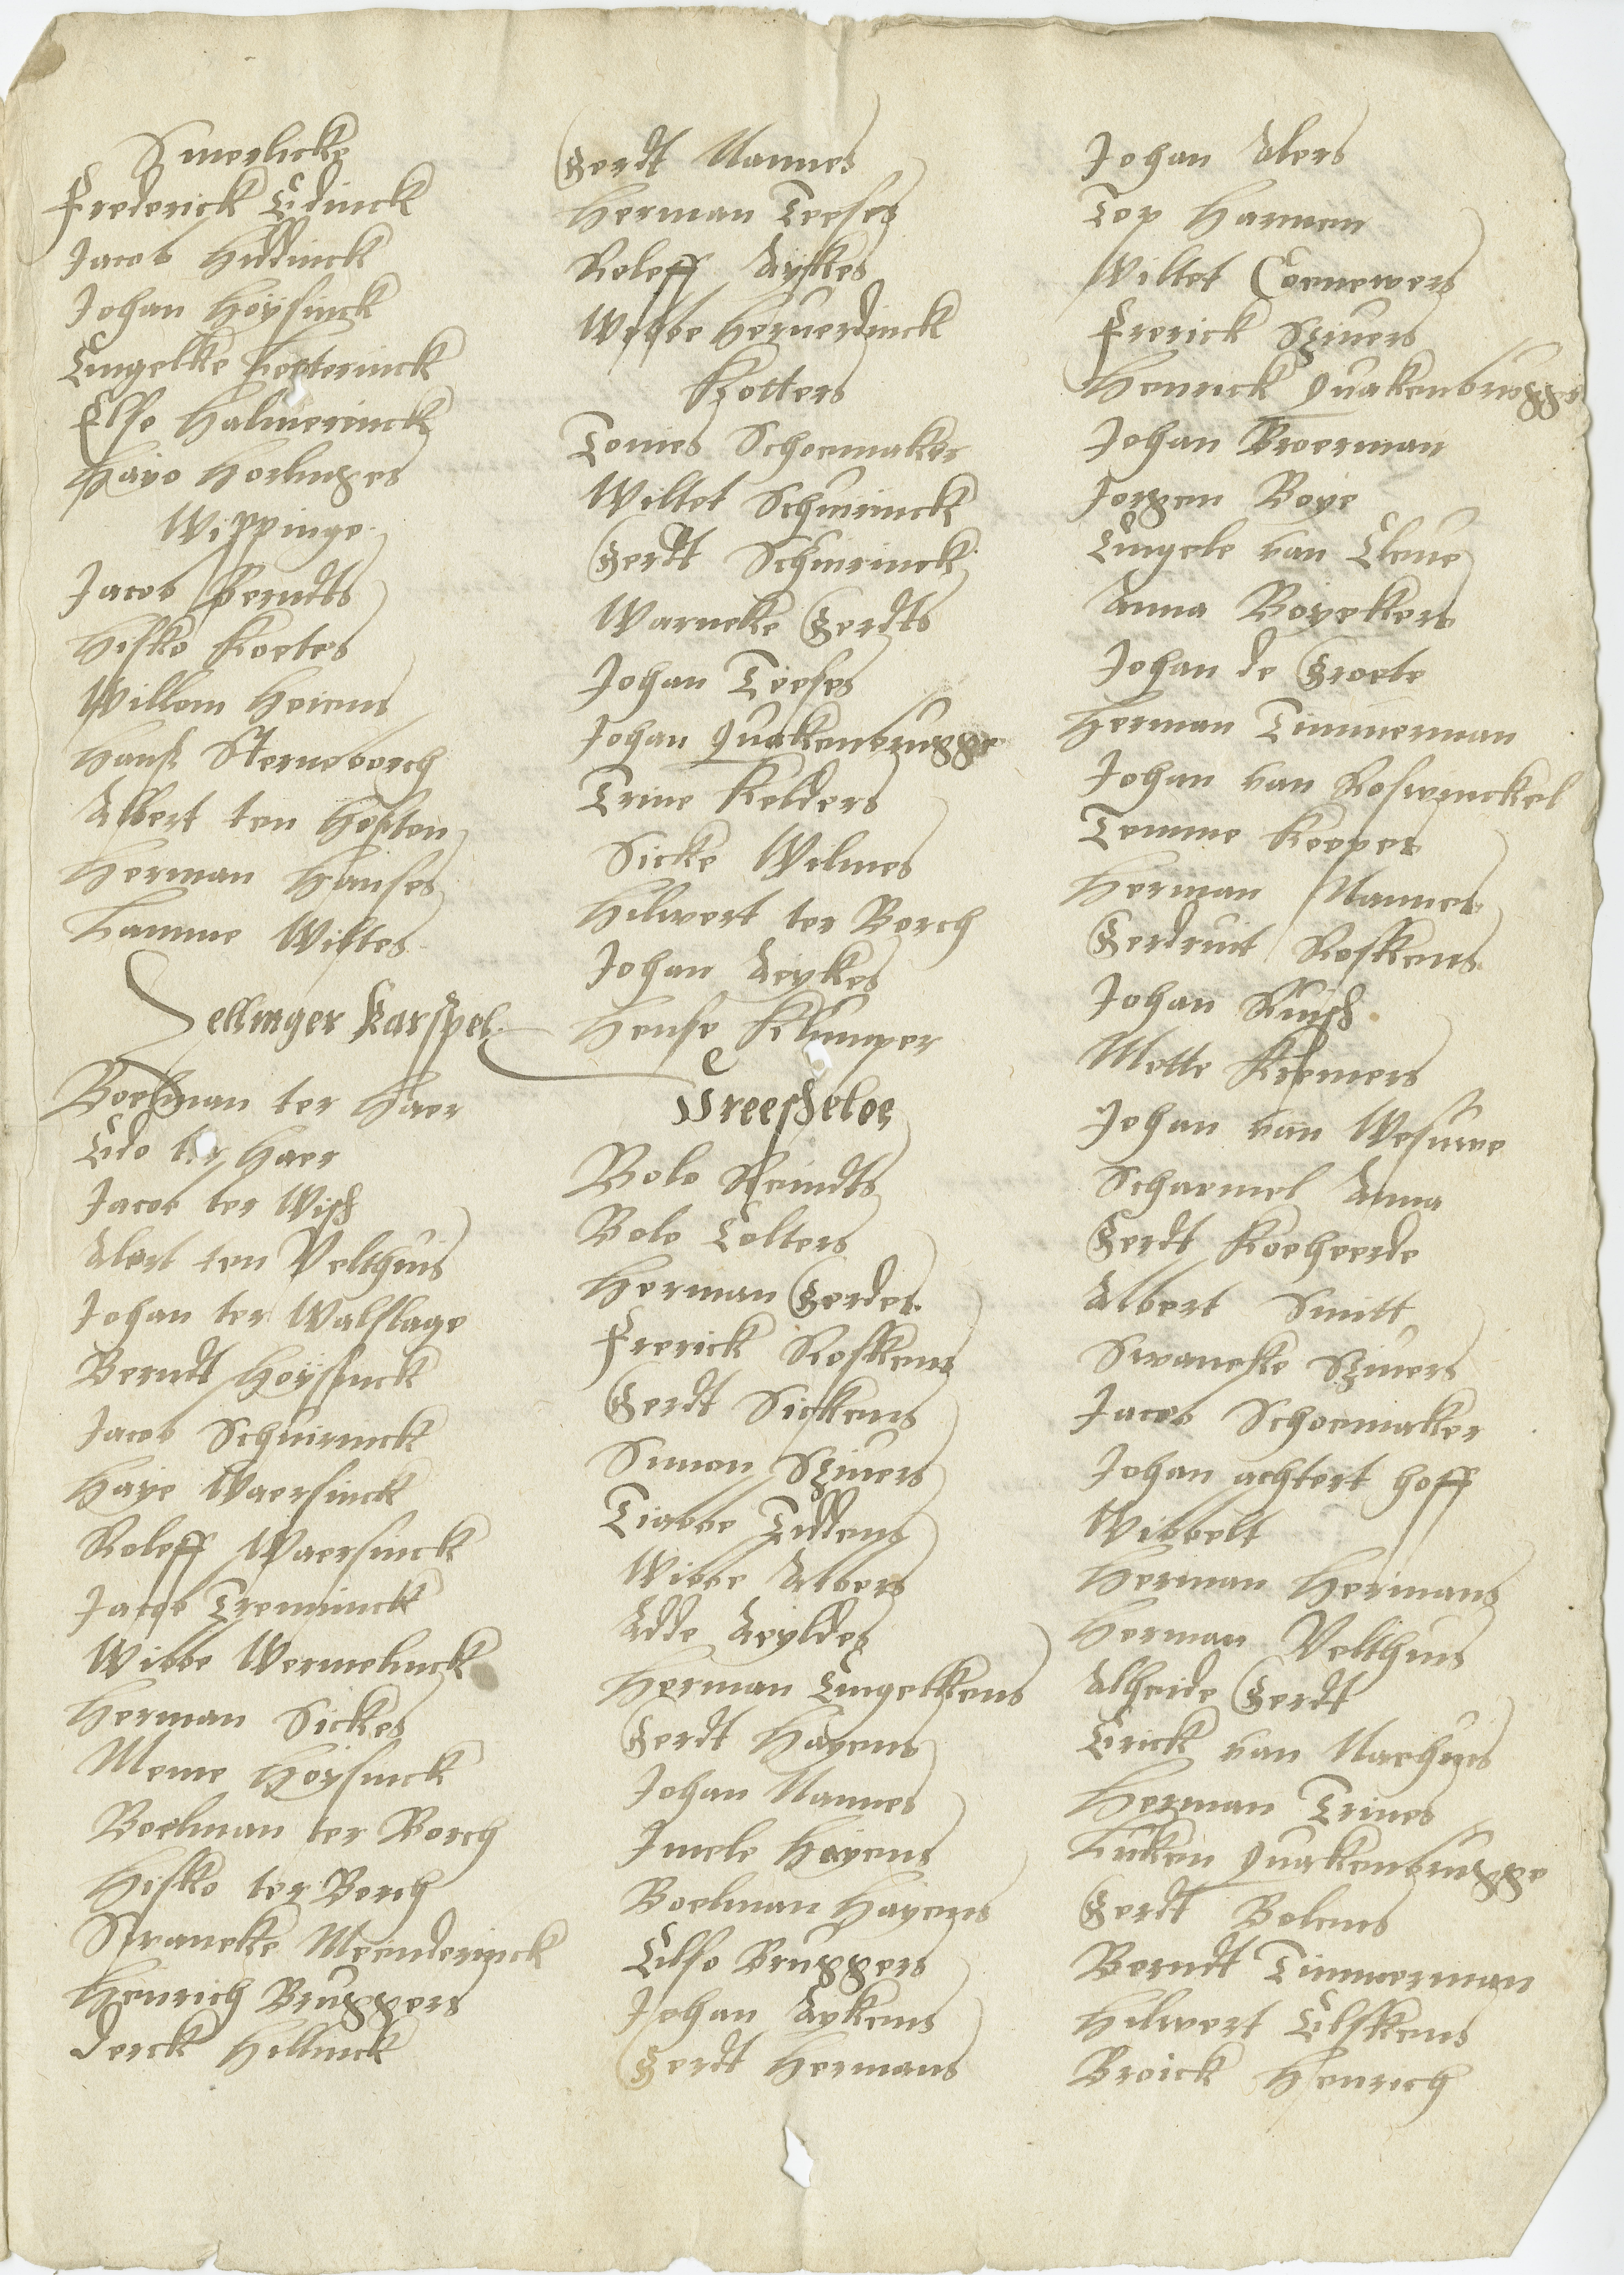 Smerlicke
Frederick Edinck
Jacob Hiddinck
Johan Höysinck
Engelke Heeterinck
Else Halmerinck
Hayo Horlinges
Wippinge
Jacob Berndts
Hisko Koetes
Willem Heiens
Hanß Sterneborch
Albert ten Holten
Herman Hanses
Lamme Wiltes
Sellinger Karspel
Boelman ter Haer
Edo ter Haer
Jacob ter Wisch
Alert ten Velthuis
Johan ter Walslage
Berndt Hoÿsinck
Jacob Schuirinck
Haye Waersinck
Roleff Waersinck
Jacob Tremminck
Wibbe Wermelinck
Herman Sickes
Meme Höysinck
Boelman ter Borch
Hisko ter Borch
Swaneke Meinderinck
Henrich Bruggers
Derck Hillinck
Gerdt Nannes
Herman Teeses
Roleff Aykes
Wobbe Heruerdinck
Kotters
Tonies Schoemaker
Wiltet Schuirinck
Gerdt Schuirinck
Warneke Gerdts
Johan Teeses
Johan Quakenbrugge
Trine Kelders
Sicke Wilmes
Hilwert ter Borch
Johan Aeykes
Hense Klumper
Vreescheloe
Bole Reindts
Bole Tolters
Herman Gerdes
Frerick Roskens
Gerdt Sickens
Simon Siuers
Tiabbe Tiddens
Wibbe Albers
Adde Aeyldes
Herman Engelkens
Gerdt Hayens
Johan Nannes
Imele Hayens
Boelman Hayens
Elso Bruggers
Johan Aykens
Gerdt Hermans
Johan Alers
Top Harmen
Wiltet Coenewers
Frerick Siuers
Henrick Quakenbrugge
Johan Broerman
Jorgen Boye
Engele van Cleue
Anna Boyekers
Johan de Groete
Herman Timmerman
Johan van Roswinckel
Temme Keeper
Herman Nannes
Gerdruit Roskens
Johan Ruisch
Mette Kremers
Johan van Wesuwe
Scharmel Anna
Gerdt Koeheerde
Albert Smitt
Swaneke Siuers
Jacob Schoemaker
Johan achtert hoff
Wibbelt
Herman Hermans
Herman Velthuis
Alheide Gerdt
Erick van Naehuis
Herman Trines
Luken Quakenbrugge
Gerdt Bolens
Berndt Timmerman
Hilwert Elskens
Broick Henrich